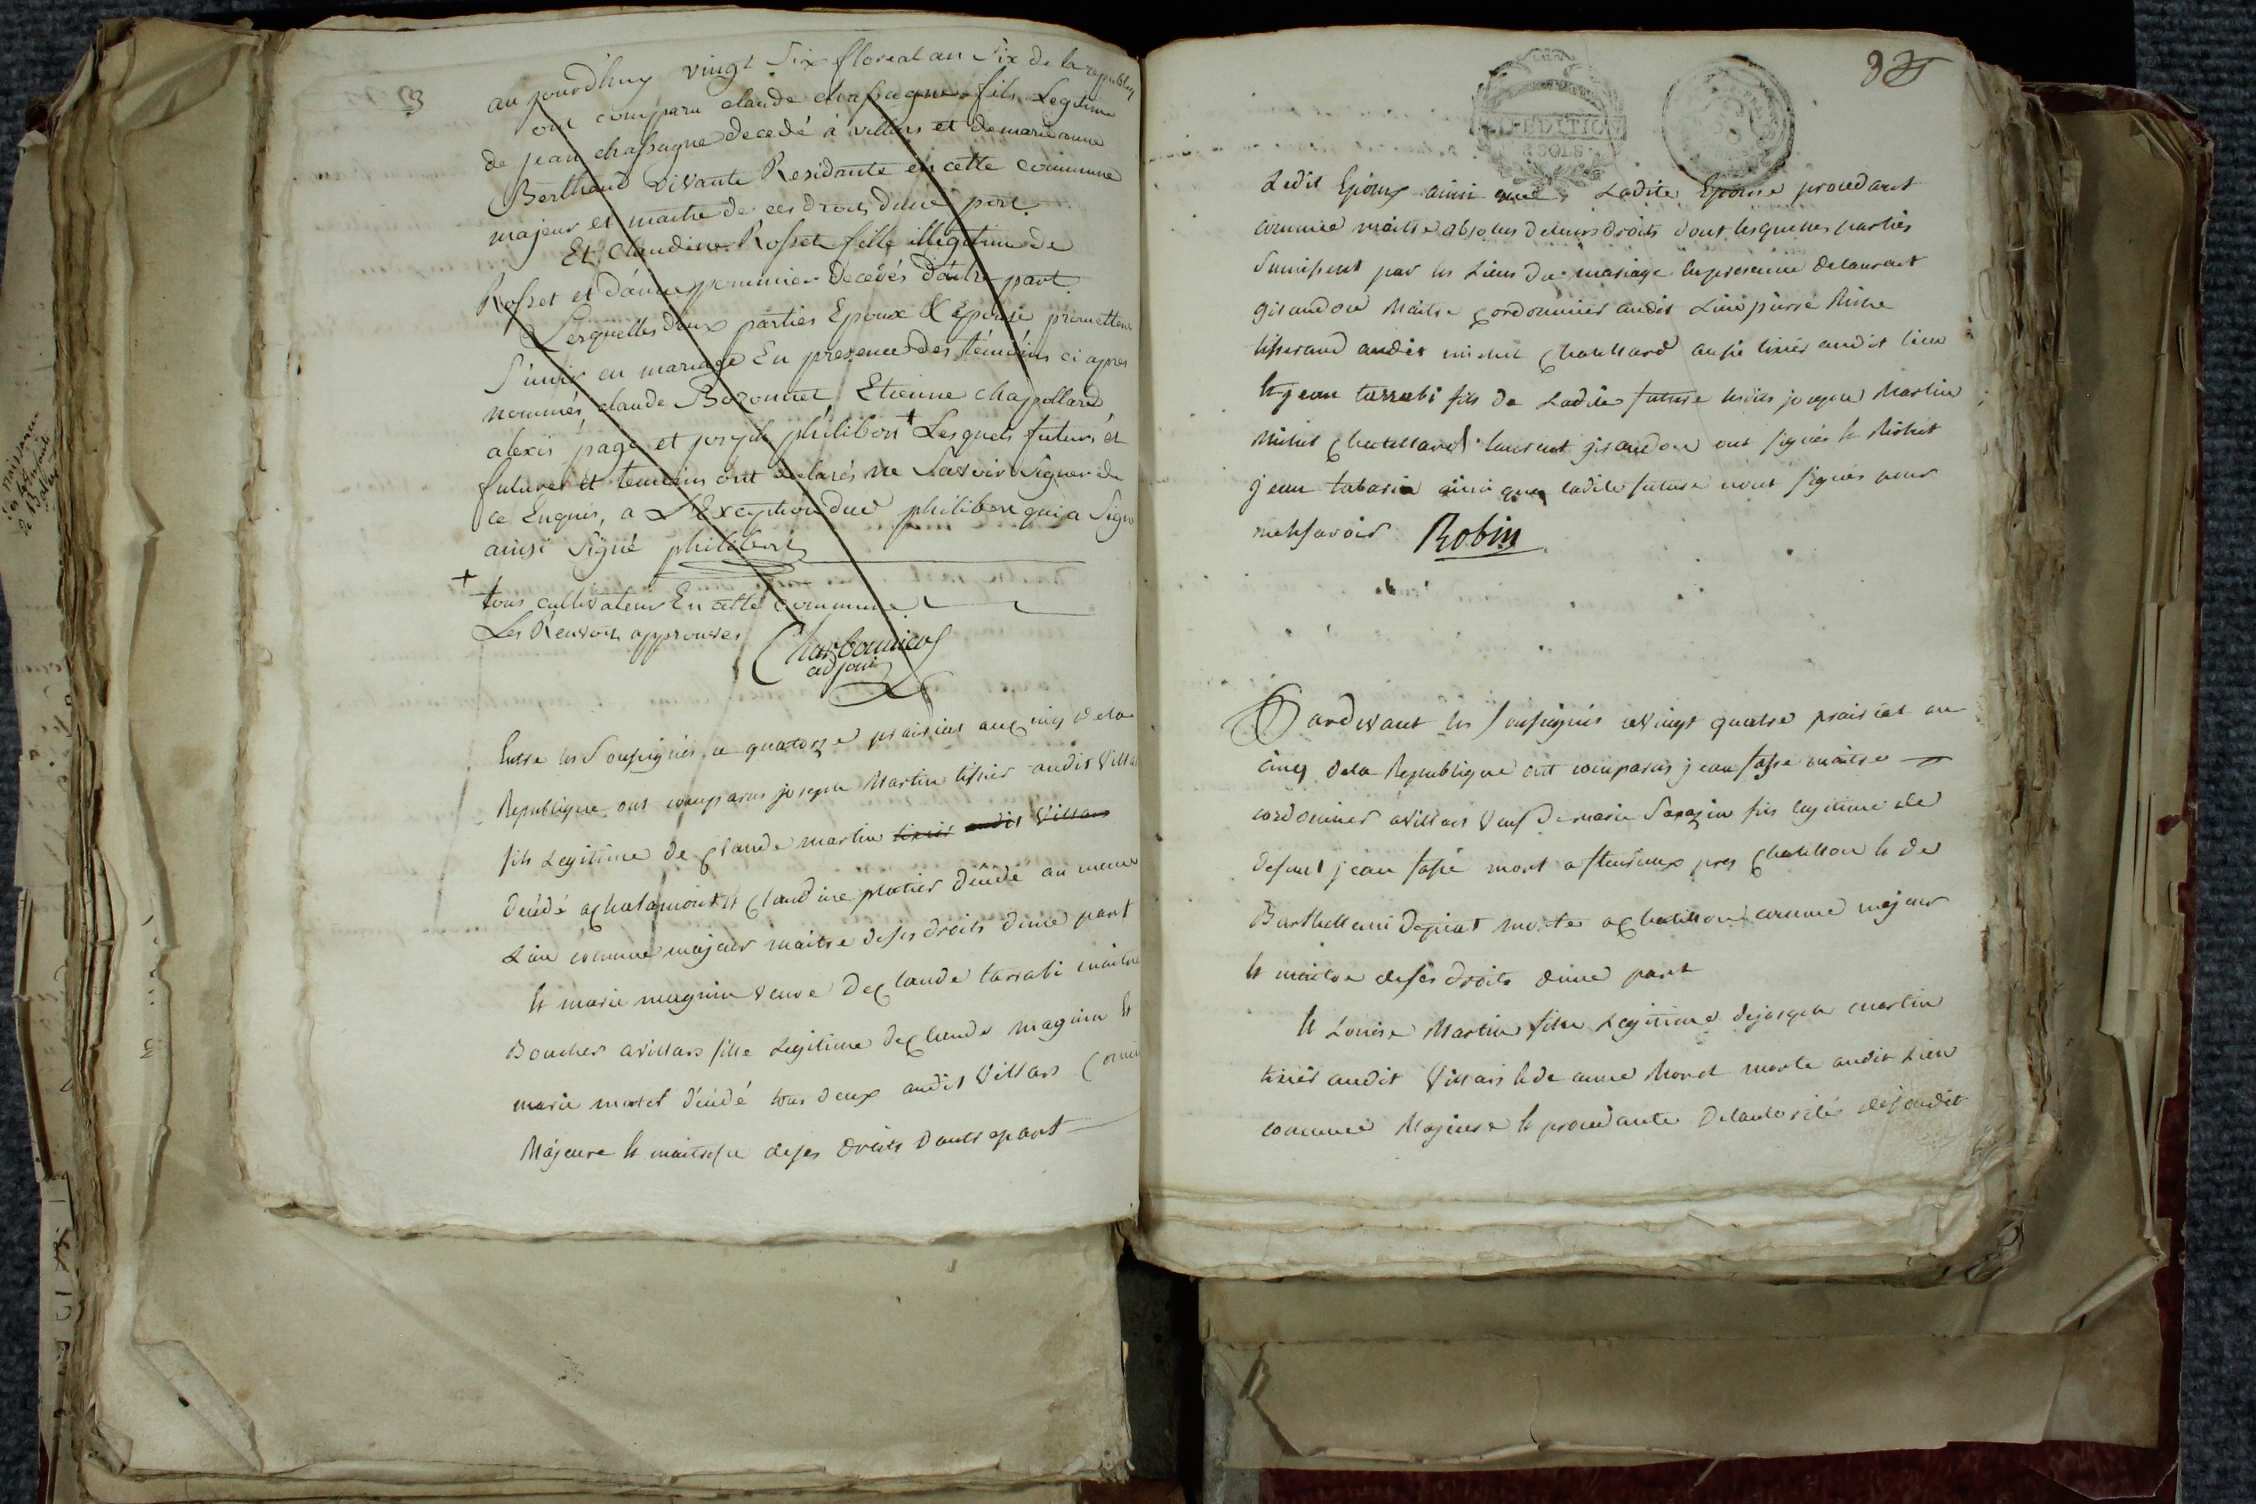 aujourd'huy vingt Six floreal an Six de la republiq
ont comparu claude chassagne fils Legitime
de jean chassagne decedé à villars et de marie anne
Berthaud vivante Residante en cette commune
majeur et maitre de ces droits d'une part
Et Claudine Rosset fille illegitime de
Rosset et d'anne pommier décédés d'autre part
Lesquelles deux parties Epoux & épouse promettent
S'unir en mariage En presence des témoins ci apres
nommés, claude Bozonnet Etienne chapollard
alexis page et joseph philibert + Lesquels futurs et
future et temoins ont declarés ne Savoir Signer de
ce Enquis, a L'Exception dud philibert qui a Signé
ainsi Signé philibert
+
tous cultivateurs En cette commune
Les Renvois approuvés
Charbonnier
adjoint
Entre les Soussignés ce quatorze prairial an cinq de la
Republique ont comparus joseph Martin tissier audit Villars
fils Legitime de Claude martin tixier audit Villars
décédé a Chalamont et Claudine platier décédé au meme
Lieu comme majeur maitre de ses droits d'une part
et marie magnin veuve de Claude tarrabi maitre
Boucher a villars fille Legitime de Claude magnin et
marie morel décédé tous deux audit Villars Comme
Majeure et maitresse de ses droits d'autre part
32
EXPEDITION
Ledit Epoux ainsi que Ladite Epouse procedant
comme maitre absolus de leurs droits dont lesquelles parties
S'unissent par les Liens du mariage en presence de laurent
giraudon Maitre Cordonnier audit Lieu pierre
tisserand audit michel Chatillard aussi tixier audit lieu
et jean tarrabi fils de Ladite future lesdits joseph Martin
Michel Chatillard laurent giraudon ont signés et
jean tabaria ainsi que ladite future n'ont signés pour
ne le savoir Robin
Pardevant les soussignés ce vingt quatre prairial an
cinq de la Republique ont comparus jean fassie maitre
cordonnier a Villars Veuf de marie Sarazin fils legitime de
defunt jean fassie mort a fleurieux pres Chatillon et de
Barthellemi morte a Chatillon comme majeur
et maitre de ses droits d'une part
et Louise Martin fille Legitime de joseph martin
tixier audit Villars et de anne Morel morte audit Lieu
comme Majeure et procedante de l'autorité de sondit